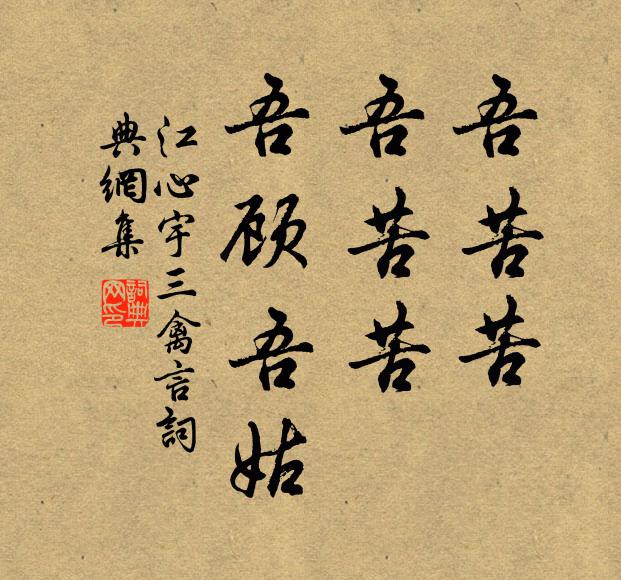 吾苦苦
吾苦苦
吾顾吾姑
江心宇三禽言詞
典網集
詞典
网印